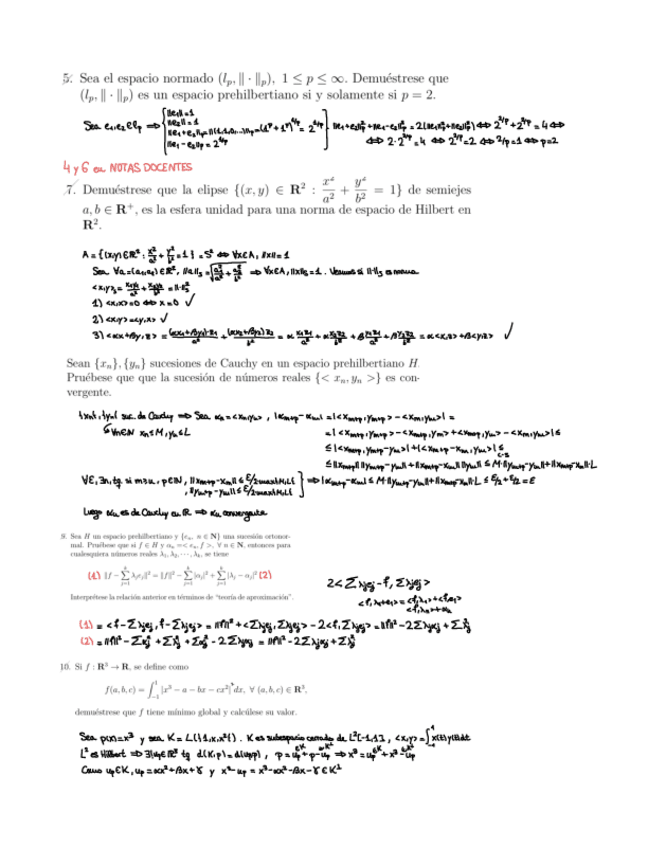 5. Sea el espacio normado (l_p, ‖ · ‖_p), 1 ≤ p ≤ ∞. Demuéstrese que
(l_p, ‖ · ‖_p) es un espacio prehilbertiano si y solamente si p = 2.
Sea e₁,e₂ ∈ l_p ⇒ { ‖e₁‖=1
‖e₂‖=1
‖e₁+e₂‖_p=‖(1,1,0,...)‖_p=(1^p+1^p)^{1/p}= 2^{1/p}
‖e₁-e₂‖_p = 2^{1/p}
‖e₁+e₂‖_p²+‖e₁-e₂‖_p² = 2(‖e₁‖_p²+‖e₂‖_p²) ⇔ 2^{2/p}+2^{2/p}=4 ⇔
⇔ 2·2^{2/p}=4 ⇔ 2^{2/p}=2 ⇔ 2/p=1 ⇔ p=2
4 y 6 en NOTAS DOCENTES
7. Demuéstrese que la elipse {(x, y) ∈ R² : x²/a² + y²/b² = 1} de semiejes
a, b ∈ R⁺, es la esfera unidad para una norma de espacio de Hilbert en
R².
A = {(x,y)∈R² : x²/a² + y²/b² = 1} = S² ⇔ ∀x∈A, ‖x‖=1
1) <x,x>=0 ⇔ x=0 ✓
2) <x,y>=<y,x> ✓
3) <αx+βy,z> = (αx₁+βy₁)·z₁/a² + (αx₂+βy₂)z₂/b² = α x₁z₁/a² + α x₂z₂/b² + β y₁z₁/a² + β y₂z₂/b² = α<x,z>+β<y,z> ✓
Sean {x_n}, {y_n} sucesiones de Cauchy en un espacio prehilbertiano H.
Pruébese que que la sucesión de números reales {< x_n, y_n >} es con-
vergente.
{x_n}, {y_n} suc. de Cauchy ⇒ Sea α_n=<x_n,y_n>, |α_{m+p}-α_m|=|<x_{m+p},y_{m+p}>-<x_m,y_m>| =
∀n∈N x_n≤M, y_n≤L
=|<x_{m+p},y_{m+p}>-<x_{m+p},y_m>+<x_{m+p},y_m>-<x_m,y_m>|≤
≤|<x_{m+p},y_{m+p}-y_m>|+|<x_{m+p}-x_m,y_m>|≤
≤‖x_{m+p}‖‖y_{m+p}-y_m‖+‖x_{m+p}-x_m‖‖y_m‖≤M·‖y_{m+p}-y_m‖+‖x_{m+p}-x_m‖·L
Luego α_n es de Cauchy en R ⇒ α_n convergente
9. Sea H un espacio prehilbertiano y {e_n, n ∈ N} una sucesión ortonor-
mal. Pruébese que si f ∈ H y α_n =< e_n, f >, ∀ n ∈ N, entonces para
cualesquiera números reales λ₁, λ₂, · · · , λ_k, se tiene
(1) ‖f − ∑_{j=1}^k λ_j e_j‖² = ‖f‖² − ∑_{j=1}^k |α_j|² + ∑_{j=1}^k |λ_j − α_j|² (2)
Interprétese la relación anterior en términos de "teoría de aproximación".
2<∑λ_je_j - f, ∑λ_je_j>
(1) = <f-∑λ_je_j, f-∑λ_je_j> = ‖f‖²+<∑λ_je_j,∑λ_je_j>-2<f,∑λ_je_j>=‖f‖²-2∑λ_jα_j+∑λ_j²
(2) = ‖f‖²-∑α_j²+∑λ_j²+∑α_j²-2∑λ_jα_j = ‖f‖²-2∑λ_jα_j+∑λ_j²
10. Si f : R³ → R, se define como
f(a, b, c) = ∫_{−1}^{1} |x³ − a − bx − cx²|² dx, ∀ (a, b, c) ∈ R³,
demuéstrese que f tiene mínimo global y calcúlese su valor.
Sea p(x)=x³ y sea K=L({1,x,x²}). K es subespacio cerrado de L²[-1,1], <x,y>=∫_{-1}^{1} x(t)y(t)dt
Como u_p∈K, u_p=αx²+βx+γ y x³-u_p = x³-αx²-βx-γ ∈ K^⊥